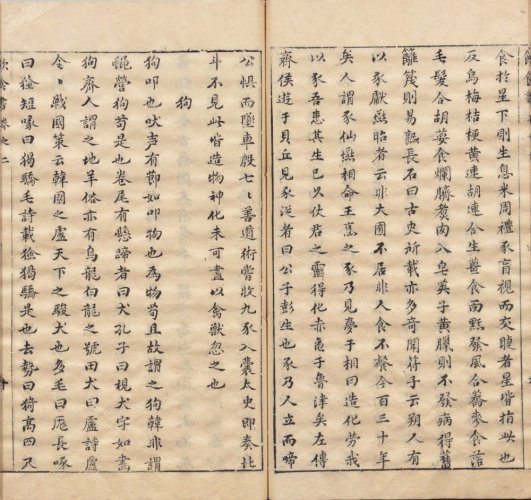 食於星下則生息米周禮豕盲視而交睫者星皆指此也
反烏梅桔梗黄連胡連合生薑食面黙發風合蕎麥食落
毛髮合胡荽食爛臍煑肉入皂莢子黄臘則不發病得舊
籬篾則易熟長石曰古史所載亦多奇聞符子云朔人有
以豕獻燕昭者云非大圊不居非人食不餐今百三十年
矣人謂豕仙燕相命王烹之豕乃見夢于相曰造化勞我
以豕吾患其生已久仗君之靈得化亦龜于魯津矣左傳
齊侯遊于貝丘見豕從者曰公子彭生也豕乃人立而啼
公惧而墜車殷七七善道術嘗收九豕入囊太史即奏北
斗不見此皆造物神化未可盡以禽獸忽之也
狗
狗叩也吠声有節如叩物也為物苟且故謂之狗韓非謂
蠅營狗苟是也卷尾有懸蹄者曰犬孔子曰視犬字如畫
狗齊人謂之地羊俗亦有烏龍白龍之號田犬曰盧詩盧
令令戰國策云韓國之盧天下之駿犬也多毛曰厖長喙
曰獫短喙曰猲驕毛詩載獫猲驕是也去勢曰猗高四尺
飲食書卷之二